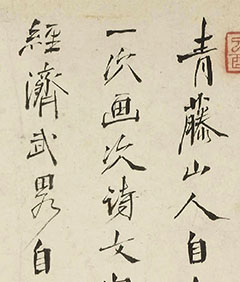 青藤山人自
一次画次诗文
經濟武畧自